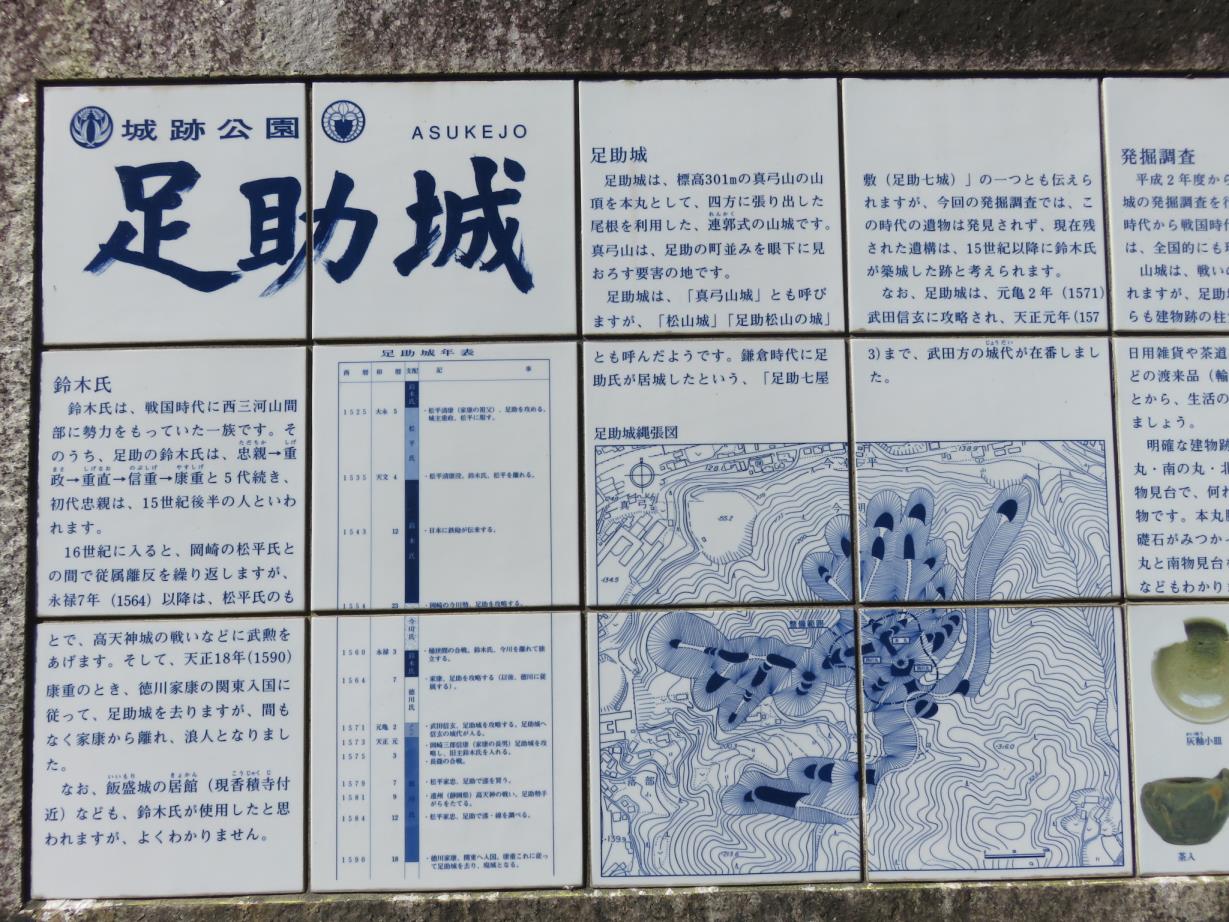 城跡公園
ASUKEJO
足助城
足助城
足助城は、標高301mの真弓山の山
頂を本丸として、四方に張り出した
尾根を利用した、連郭式の山城です。
れんかく
真弓山は、足助の町並みを眼下に見
おろす要害の地です。
足助城は、「真弓山城」とも呼び
ますが、「松山城」「足助松山の城」
とも呼んだようです。鎌倉時代に足
助氏が居城したという、「足助七屋
敷（足助七城）」の一つとも伝えら
れますが、今回の発掘調査では、こ
の時代の遺物は発見されず、現在残
された遺構は、15世紀以降に鈴木氏
が築城した跡と考えられます。
なお、足助城は、元亀2年（1571）
武田信玄に攻略され、天正元年(157
3)まで、武田方の城代が在番しまし
じょうだい
た。
発掘調査
平成2年度から
城の発掘調査を行
時代から戦国時代
は、全国的にも珍
山城は、戦いの
れますが、足助城
らも建物跡の柱
日用雑貨や茶道
どの渡来品（輸
とから、生活の
ましょう。
明確な建物跡
丸・南の丸・北
物見台で、何れ
物です。本丸
礎石がみつかっ
丸と南物見台
などもわかりま
鈴木氏
鈴木氏は、戦国時代に西三河山間
部に勢力をもっていた一族です。そ
のうち、足助の鈴木氏は、忠親→重
ただちか しげ
政→重直→信重→康重と5代続き、
まさ しげなお のぶしげ やすしげ
初代忠親は、15世紀後半の人といわ
れます。
16世紀に入ると、岡崎の松平氏と
の間で従属離反を繰り返しますが、
永禄7年（1564）以降は、松平氏のも
とで、高天神城の戦いなどに武勲を
あげます。そして、天正18年(1590)
康重のとき、徳川家康の関東入国に
従って、足助城を去りますが、間も
なく家康から離れ、浪人となりまし
た。
なお、飯盛城の居館（現香積寺付
いいもり きょかん こうじゃくじ
近）なども、鈴木氏が使用したと思
われますが、よくわかりません。
足助城年表
西暦 和暦 支配 記事
鈴木氏
1525 大永5 ・松平清康（家康の祖父）、足助を攻める。
城主重政、松平に服す。
松平氏
1535 天文4 ・松平清康没。鈴木氏、松平を離れる。
鈴木氏
1543 12 ・日本に鉄砲が伝来する。
1554 23 ・岡崎の今川勢、足助を攻略する。
今川氏
1560 永禄3 ・桶狭間の合戦。鈴木氏、今川を離れて独
立する。
鈴木氏
1564 7 ・家康、足助を攻略する（以後、徳川に従
属する）。
徳川氏
1571 元亀2 ・武田信玄、足助城を攻略する。足助城へ
信玄の城代が入る。
1573 天正元 ・岡崎三郎信康（家康の長男）足助城を攻
略し、旧主鈴木氏を入れる。
1575 3 ・長篠の合戦。
1579 7 ・松平家忠、足助で漆を買う。
1581 9 ・遠州（静岡県）高天神の戦い。足助勢手
がらをたてる。
1584 12 ・松平家忠、足助で漆・綿を調べる。
1590 18 ・徳川家康、関東へ入国。康重これに従っ
て足助城を去り、廃城となる。
足助城縄張図
真弓
整備範囲
落部
灰釉小皿
茶入